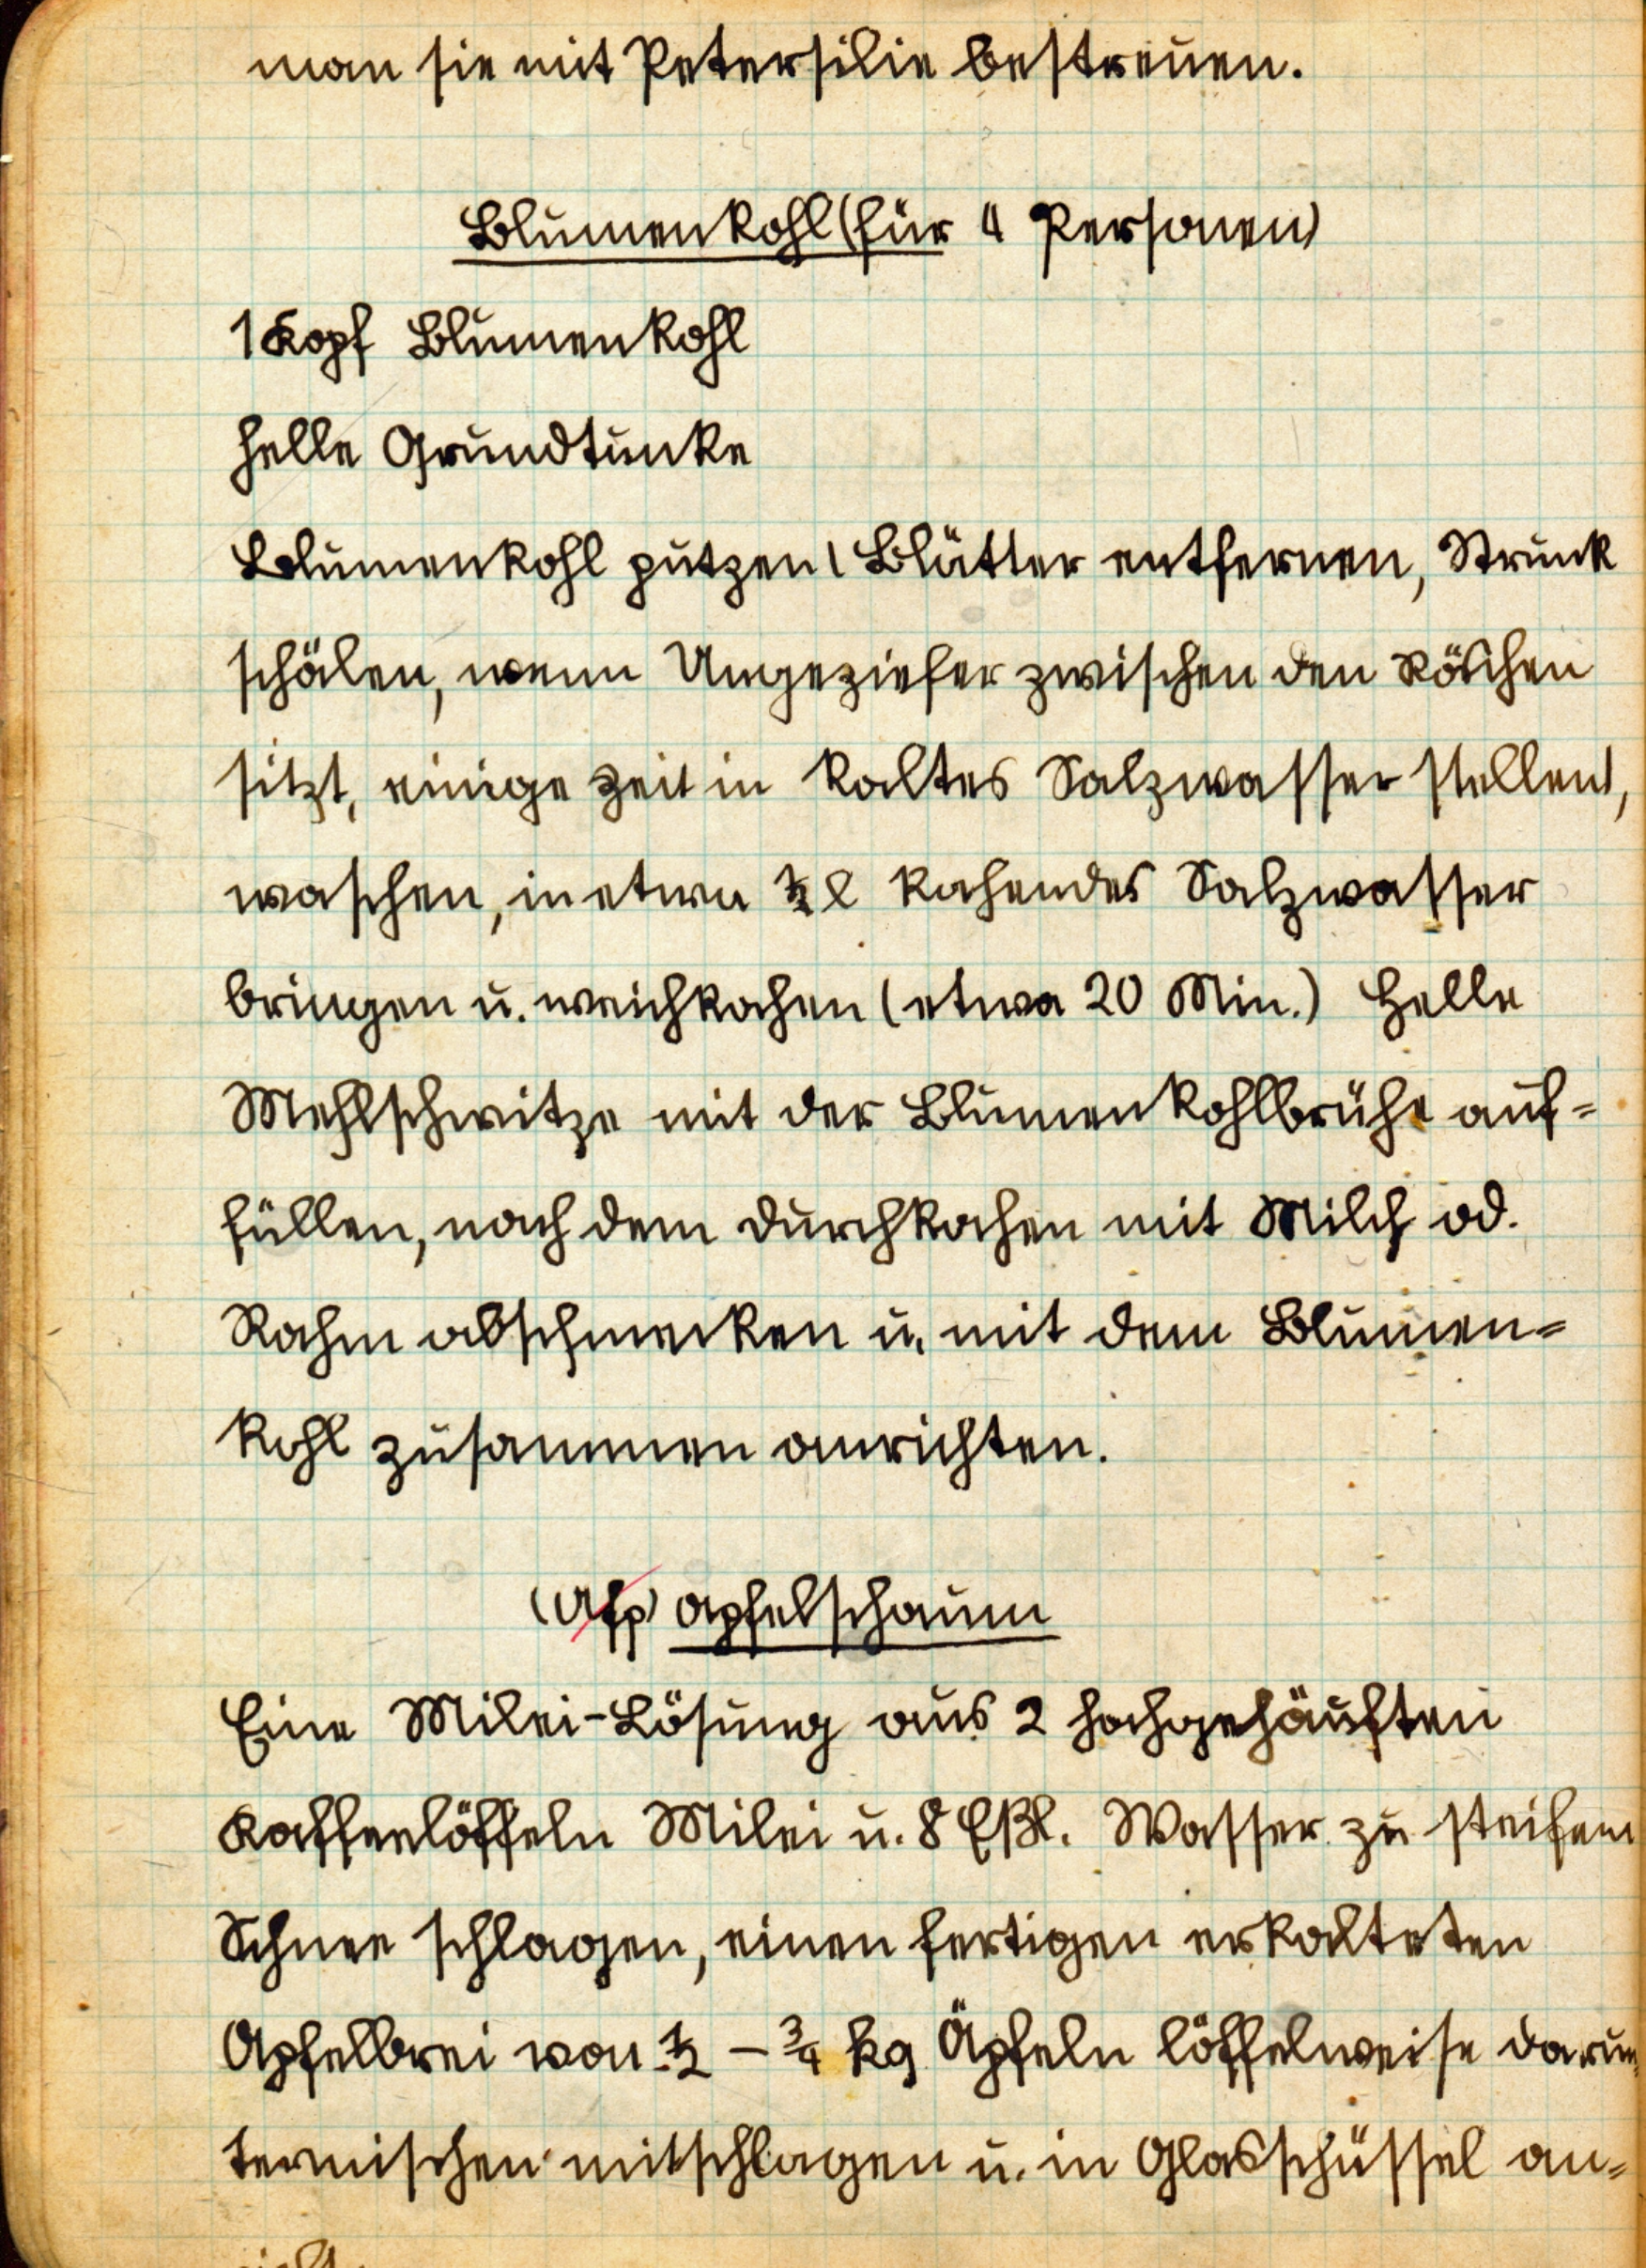 man sie mit Petersilie bestreuen.
Blumenkohl (für 4 Personen)
1 Kopf Blumenkohl
helle Grundtunke
Blumenkohl putzen (Blätter entfernen, Strunk
schälen, wenn Ungeziefer zwischen den Röschen
sitzt, einige Zeit in kaltes Salzwasser stellen),
waschen, in etwa ½ l kochendes Salzwasser
bringen u. weichkochen (etwa 20 Min.) Helle
Mehlschwitze mit der Blumenkohlbrühe auf=
füllen, nach dem Durchkochen mit Milch od.
Rahm abschmecken u. mit dem Blumen=
kohl zusammen anrichten.
(Afp) Apfelschaum
Eine Milei-Lösung aus 2 hochgehäuften
Kaffeelöffeln Milei u. 8 Eßl. Wasser zu steifem
Schnee schlagen, einen fertigen erkalteten
Apfelbrei von ½ – ¾ kg Äpfeln löffelweise darun=
termischen mitschlagen u. in Glasschüssel an=